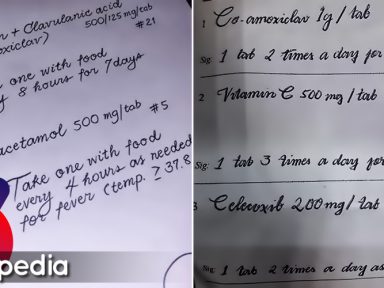 n + Clavulanic acid
500/125 mg/tab
oxiclav)
#21
one with food
8 hours for 7 days
acetamol 500 mg/tab #5
Take one with food
every 4 hours as needed
for fever (temp. ≥ 37.8
pedia
1 Co-amoxiclav 1g / tab
Sig: 1 tab 2 times a day for
2 Vitamin C 500 mg / tab
Sig: 1 tab 3 times a day for
3 Celecoxib 200 mg / tab
Sig: 1 tab 2 times a day as